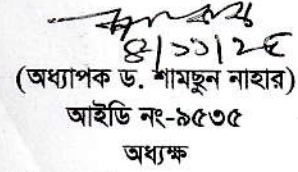 ৪/১১/২৫
(অধ্যাপক ড. শামছুন নাহার)
আইডি নং-৯৫৩৫
অধ্যক্ষ